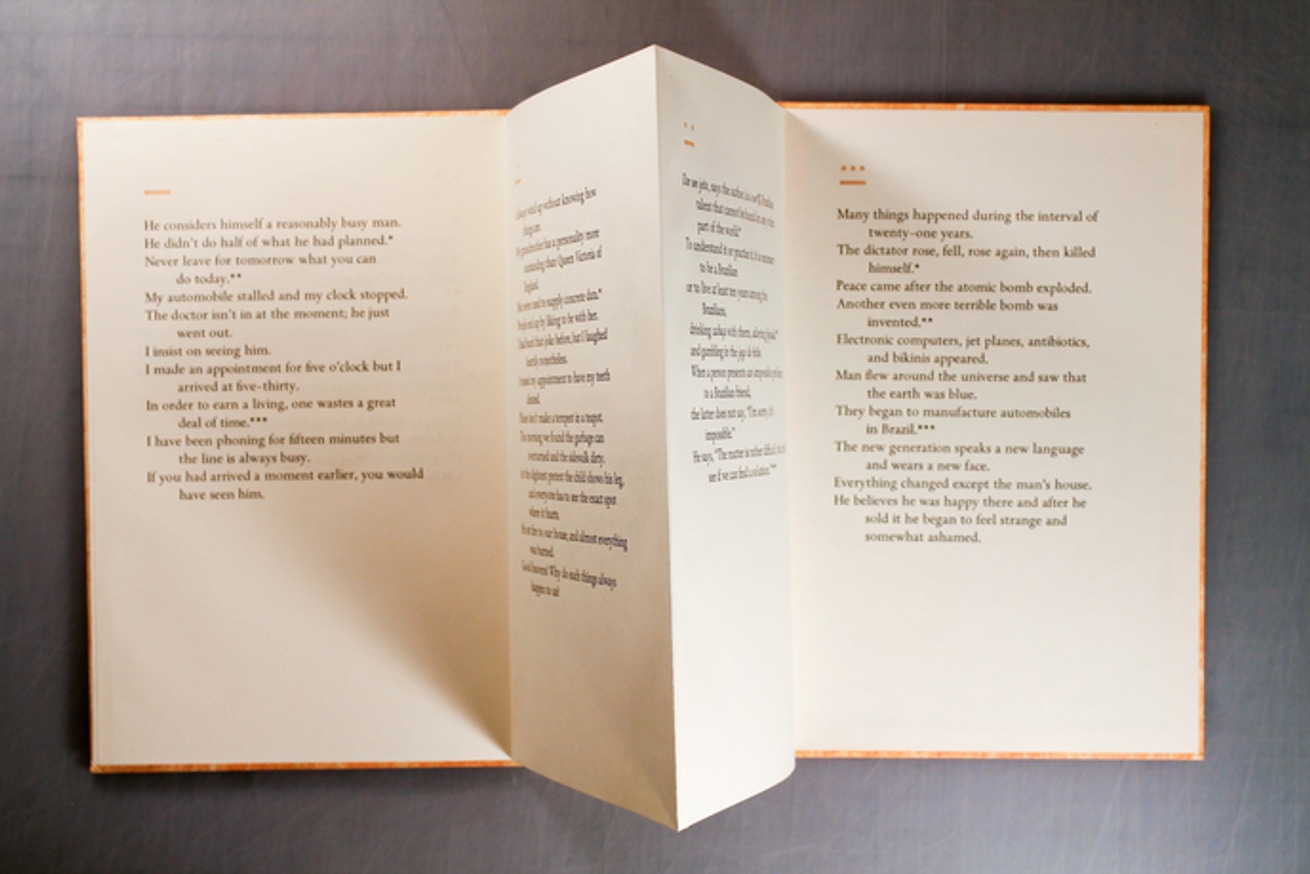 He considers himself a reasonably busy man.
He didn't do half of what he had planned.*
Never leave for tomorrow what you can
do today.**
My automobile stalled and my clock stopped.
The doctor isn't in at the moment; he just
went out.
I insist on seeing him.
I made an appointment for five o'clock but I
arrived at five-thirty.
In order to earn a living, one wastes a great
deal of time.***
I have been phoning for fifteen minutes but
the line is always busy.
If you had arrived a moment earlier, you would
have seen him.
always wind up without knowing how
things are.
My grandmother has a personality more
outstanding than Queen Victoria of
England.
never used to supply concrete data.*
People end up by liking to be with her.
had heard that joke before, but I laughed
heartily nonetheless.
my appointment to have my teeth
cleaned.
Please don't make a tempest in a teapot.
This morning we found the garbage can
overturned and the sidewalk dirty.
At the slightest pretext the child shows his leg,
and everyone has to see the exact spot
when it hurts.
fire to our house, and almost everything
was burned.
Good heavens! Why do such things always
happen to us?
says the author,
talent that cannot be found in any other
part of the world."
To understand it or practice it, it is necessary
to be a Brazilian
or to live at least ten years among the
Brazilians,
drinking with them,
and gambling in the
When a person presents an impossible
to a Brazilian friend,
the latter does not say, "I'm sorry, it's
impossible."
He says, "The matter is rather difficult, but
see if we can find a solution."
Many things happened during the interval of
twenty-one years.
The dictator rose, fell, rose again, then killed
himself.*
Peace came after the atomic bomb exploded.
Another even more terrible bomb was
invented.**
Electronic computers, jet planes, antibiotics,
and bikinis appeared.
Man flew around the universe and saw that
the earth was blue.
They began to manufacture automobiles
in Brazil.***
The new generation speaks a new language
and wears a new face.
Everything changed except the man's house.
He believes he was happy there and after he
sold it he began to feel strange and
somewhat ashamed.